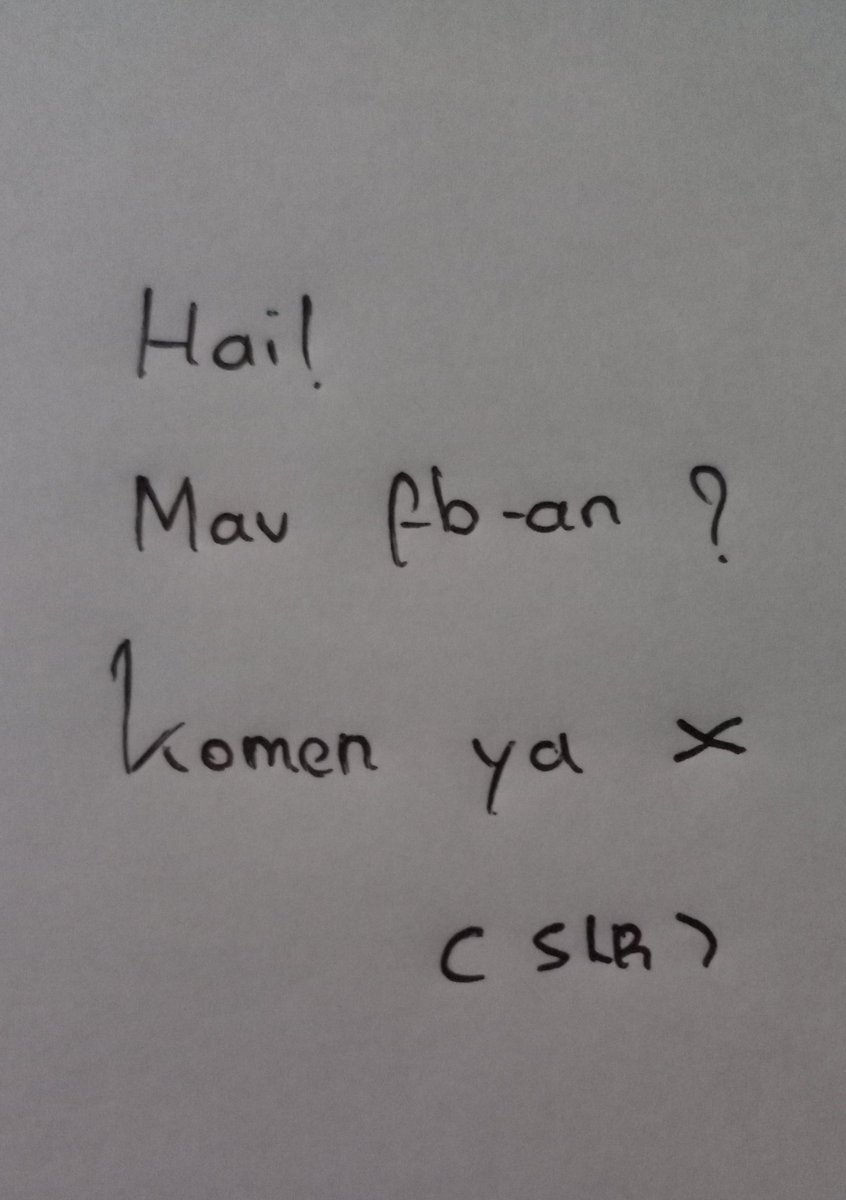 Hai!
Mau fb-an ?
Komen ya x
( SLR )